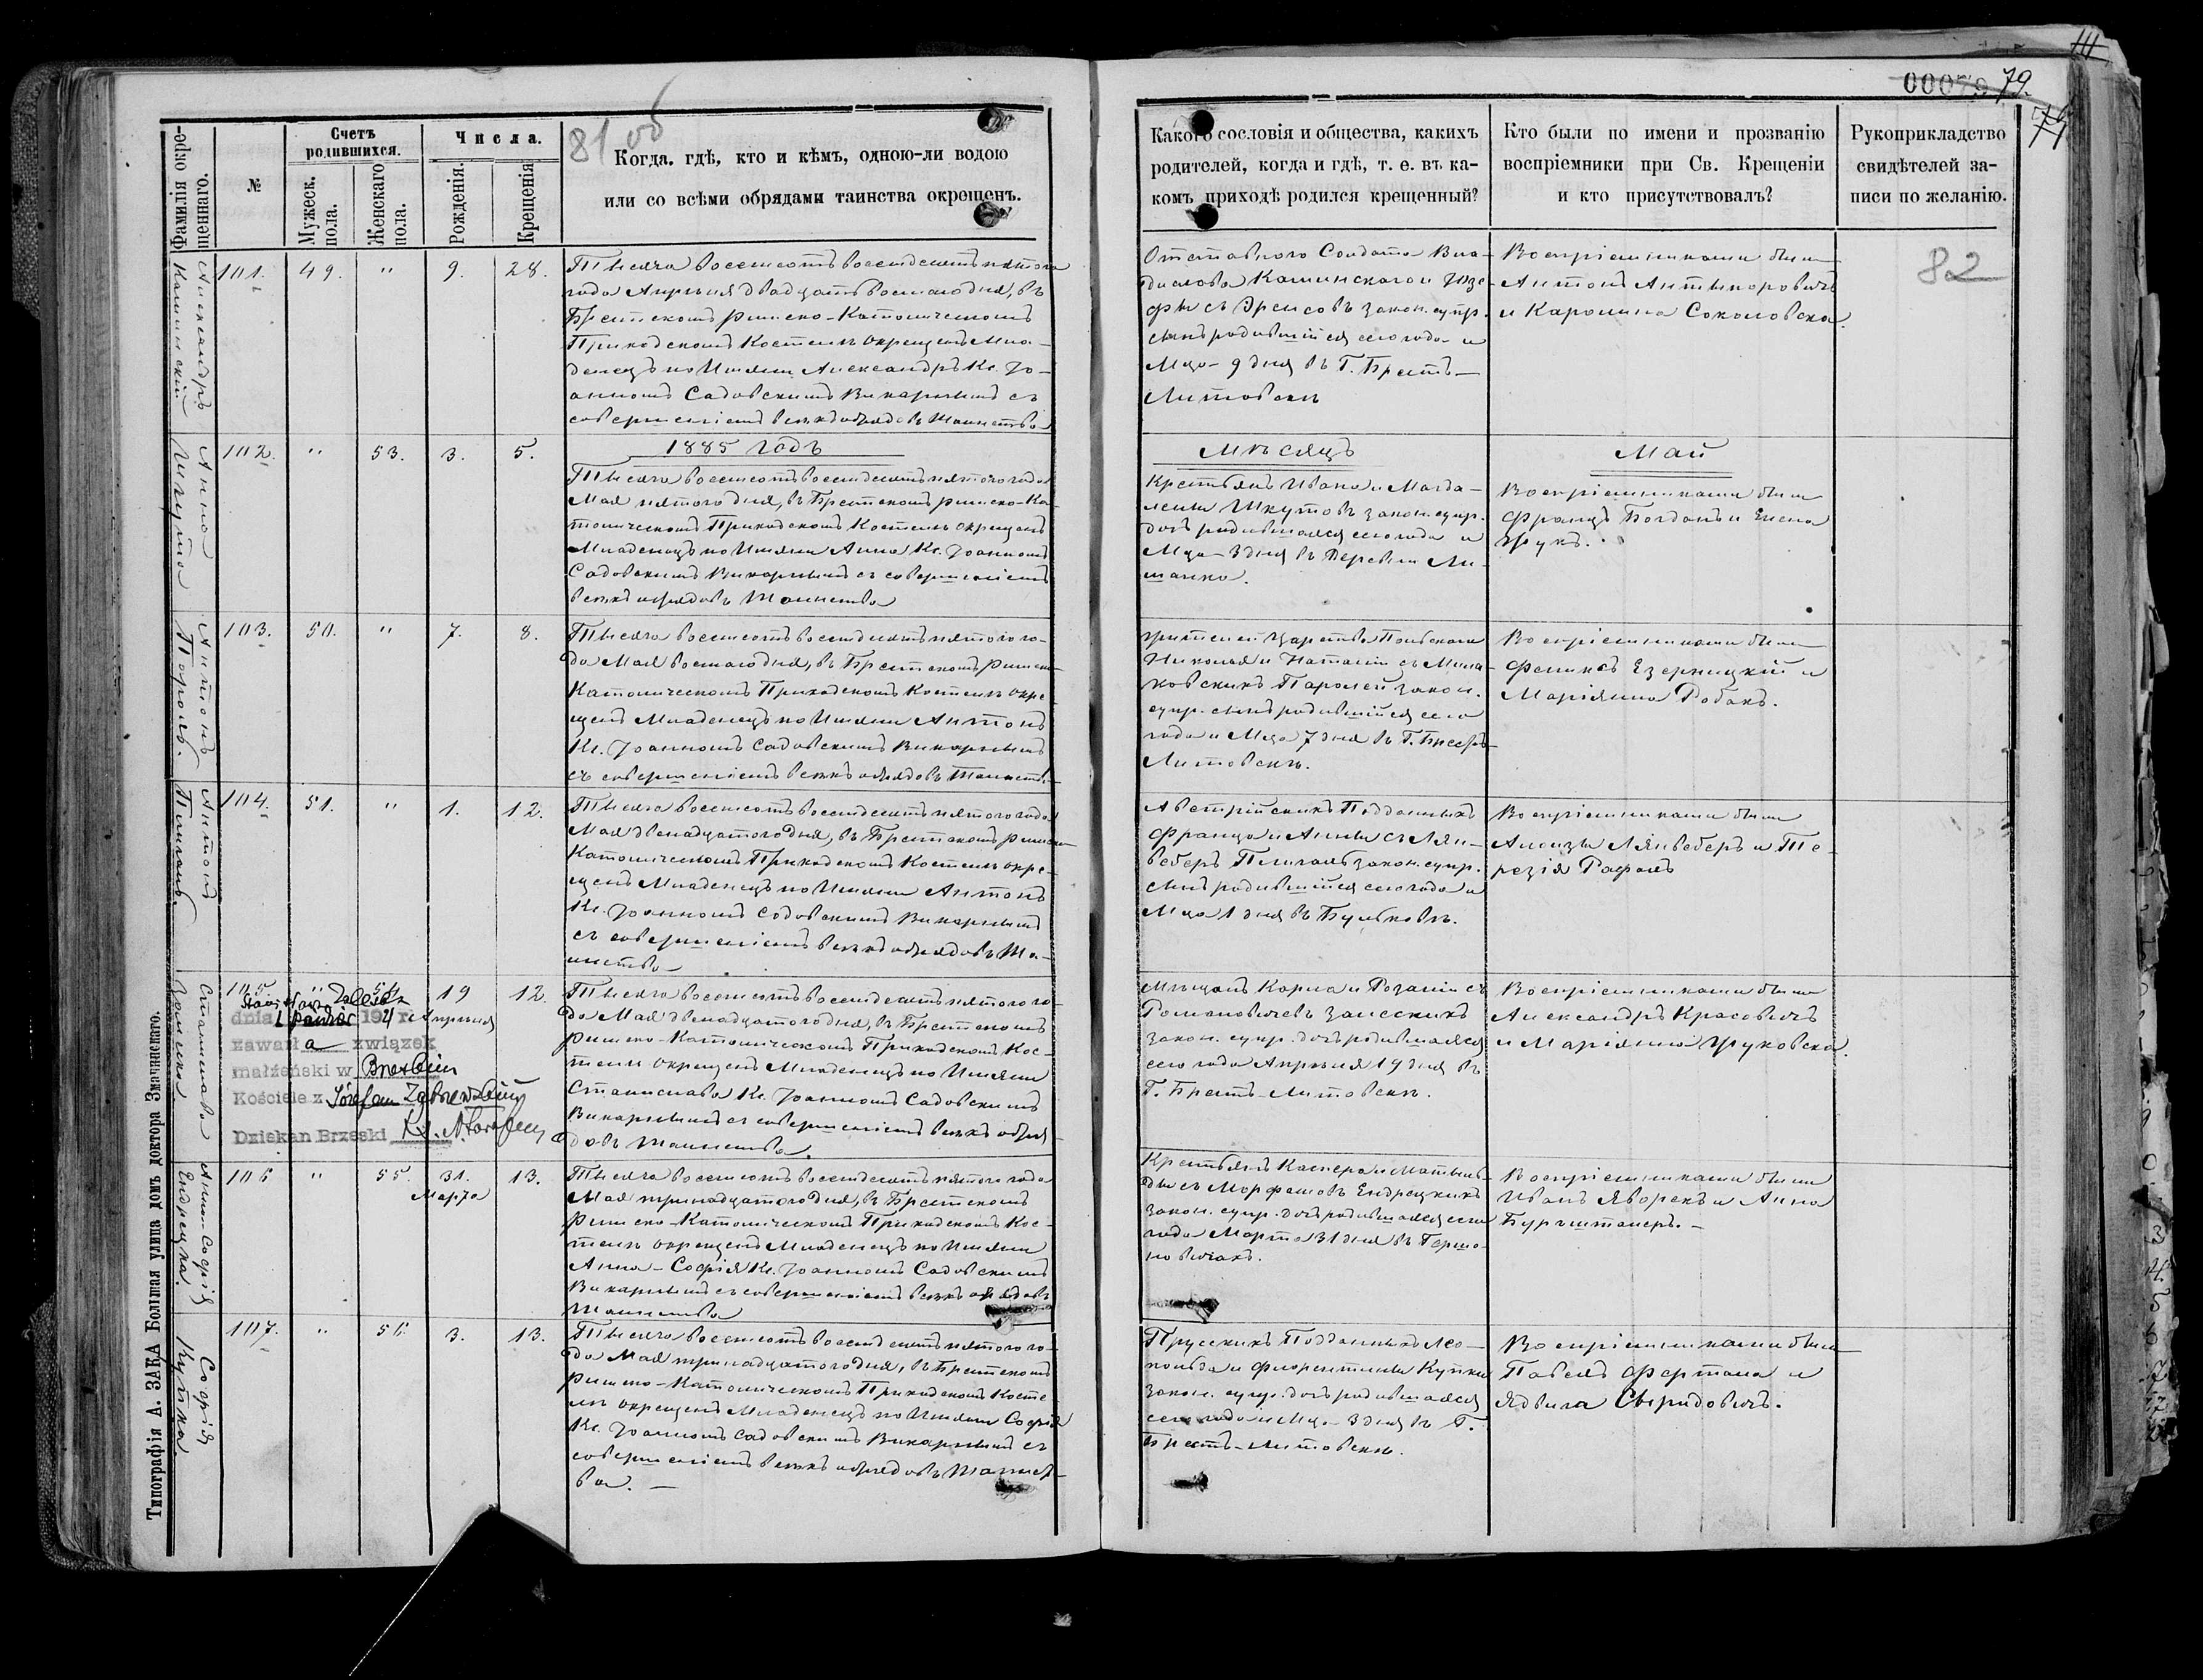 Типографія А. ЗАКА Большая улица домъ доктора Змачинскаго.
81 об
Фамилія окрещеннаго.
№
Счетъ родившихся.
Мужеск. пола.
Женскаго пола.
Числа.
Рожденія.
Крещенія
Когда. гдѣ, кто и кѣмъ, одною-ли водою
или со всѣми обрядами таинства окрещенъ.
Александръ
Каминскій
101.
49.
"
9.
28.
Тысяча восемьсотъ восемьдесятъ пятого
года Апрѣля двадцать восьмаго дня, въ
Брестскомъ римско-Католическомъ
Приходскомъ Костелѣ окрещенъ Мла-
денецъ по Имяни Александръ Кс. Іо-
анномъ Садовскимъ Викарнымъ съ
совершеніемъ всѣхъ обрядовъ Таинства
Анна
Шкута
102.
"
53.
3.
5.
1885 годъ
Тысяча восемьсотъ восемьдесятъ пятого года
Мая пятого дня, въ Брестскомъ римско-Ка-
толическомъ Приходскомъ Костелѣ окрещенъ
Младенецъ по Имяни Анна Кс. Іоанномъ
Садовскимъ Викарнымъ съ совершеніемъ
всѣхъ обрядовъ Таинства
Антонъ
Пароль.
103.
50.
"
7.
8.
Тысяча восемьсотъ восемьдесятъ пятого го-
да Мая восьмаго дня, въ Брестскомъ римско-
Католическомъ Приходскомъ Костелѣ окре-
щенъ Младенецъ по Имяни Антонъ
Кс. Іоанномъ Садовскимъ Викарнымъ
съ совершеніемъ всѣхъ обрядовъ Таинства
Антонъ
104.
51.
"
1.
12.
Тысяча восемьсотъ восемьдесятъ пятого года
Мая двенадцатого дня, въ Брестскомъ римско
Католическомъ Приходскомъ Костелѣ окре-
щенъ Младенецъ по Имяни Антонъ
Кс. Іоанномъ Садовскимъ Викарнымъ
съ совершеніемъ всѣхъ обрядовъ Та-
инства
Станислава
105
"
54
19
Апрѣля
12.
dnia 192 r.
zawarł a związek
małżeński w
Kościele z Józefem
Dziekan Brzeski Ks.
Тысяча восемьсотъ восемьдесятъ пятого го-
да Мая двенадцатого дня, въ Брестскомъ
римско-Католическомъ Приходскомъ Кос-
телѣ окрещенъ Младенецъ по Имяни
Станислава Кс. Іоанномъ Садовскимъ
Викарнымъ съ совершеніемъ всѣхъ обря-
довъ Таинства.
Анна-Софія
Ендрецка.
106
"
55.
31.
Марта
13.
Тысяча восемьсотъ восемьдесятъ пятого года
Мая тринадцатого дня, въ Брестскомъ
Римско-Католическомъ Приходскомъ Кос-
телѣ окрещенъ Младенецъ по Имяни
Анна-Софія Кс. Іоанномъ Садовскимъ
Викарнымъ съ совершеніемъ всѣхъ обрядовъ
Таинства
Софія
Купка
107.
"
56.
3.
13.
Тысяча восемьсотъ восемьдесятъ пятого го-
да Мая тринадцатого дня, въ Брестскомъ
Римско-Католическомъ Приходскомъ Косте
лѣ окрещенъ Младенецъ по Имяни Софія
Кс. Іоанномъ Садовскимъ Викарнымъ съ
совершеніемъ всѣхъ обрядовъ Таинст-
ва.
00079
79.
Какого сословія и общества, какихъ
родителей, когда и гдѣ, т. е. въ ка-
комъ приходѣ родился крещенный?
Кто были по имени и прозванію
воспріемники при Св. Крещеніи
и кто присутствовалъ?
Рукоприкладство
свидѣтелей за-
писи по желанію.
82
Отставного Солдата Вла-
дислава Каминскаго и Юзе-
фы съ Эрисовъ закон. супр.
сынъ родившійся сего года и
Мца 9 дня въ Г. Брестъ-
Литовскѣ
Воспріемниками были
Антонъ Антыпоровичъ
и Каролина Соколовска.
Мѣсяцъ
Май
Крестьянъ Ивана и Магда-
лены Шкутовъ закон. супр.
дочь родившаяся сего года и
Мца 3 дня въ Деревни Ли-
Воспріемниками были
Францъ Богданъ и Елена
Жукъ.
Жителей Царства Польскаго
Николая и Наталіи съ Мила-
ковскихъ Паролей закон.
супр. сынъ родившійся сего
года и Мца 7 дня въ Г. Брестъ-
Литовскѣ.
Воспріемниками были
Феликсъ Езерницкій и
Маріянна Робакъ.
Австрійскихъ Подданныхъ
Франца и Анны съ Лян-
веберъ закон. супр.
сынъ родившійся сего года и
Мца 1 дня въ Бульковѣ.
Воспріемниками были
Алоизы Лянвеберъ и Те-
резія
Мѣщанъ Карла и Розаліи съ
Романовичевъ Залескихъ
закон. супр. дочь родившаяся
сего года Апрѣля 19 дня въ
Г. Брестъ-Литовскѣ.
Воспріемниками были
Александръ Красовичъ
и Маріянна Жуковска.
Крестьянъ Каспера и Матыль-
ды съ Ендрецкихъ
закон. супр. дочь родившаяся сего
года Марта 31 дня въ Герша-
новичахъ.
Воспріемниками были
Иванъ Яворекъ и Анна
Прусскихъ Подданныхъ Лео-
польда и Флорентины Купки
закон. супр. дочь родившаяся
сего года и Мца 3 дня въ Г.
Брестъ-Литовскѣ.
Воспріемниками были
Павелъ Фертала и
Ядвига Свиридовичъ.